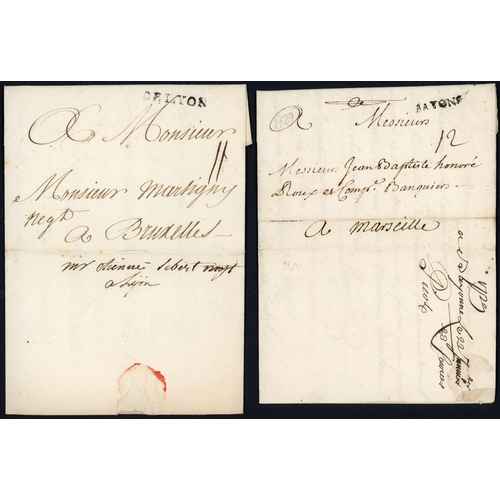 DE LYON
A Monsieur
11
Monsieur Martigny
Negt
A Bruxelles
mr etienne
a Lyon
BAYONE
1729
A Messieurs
12
Messieurs Jean Baptiste honoré
Roux et Compe. Banquiers
A Marseille
a Bayonne le 22
R 23